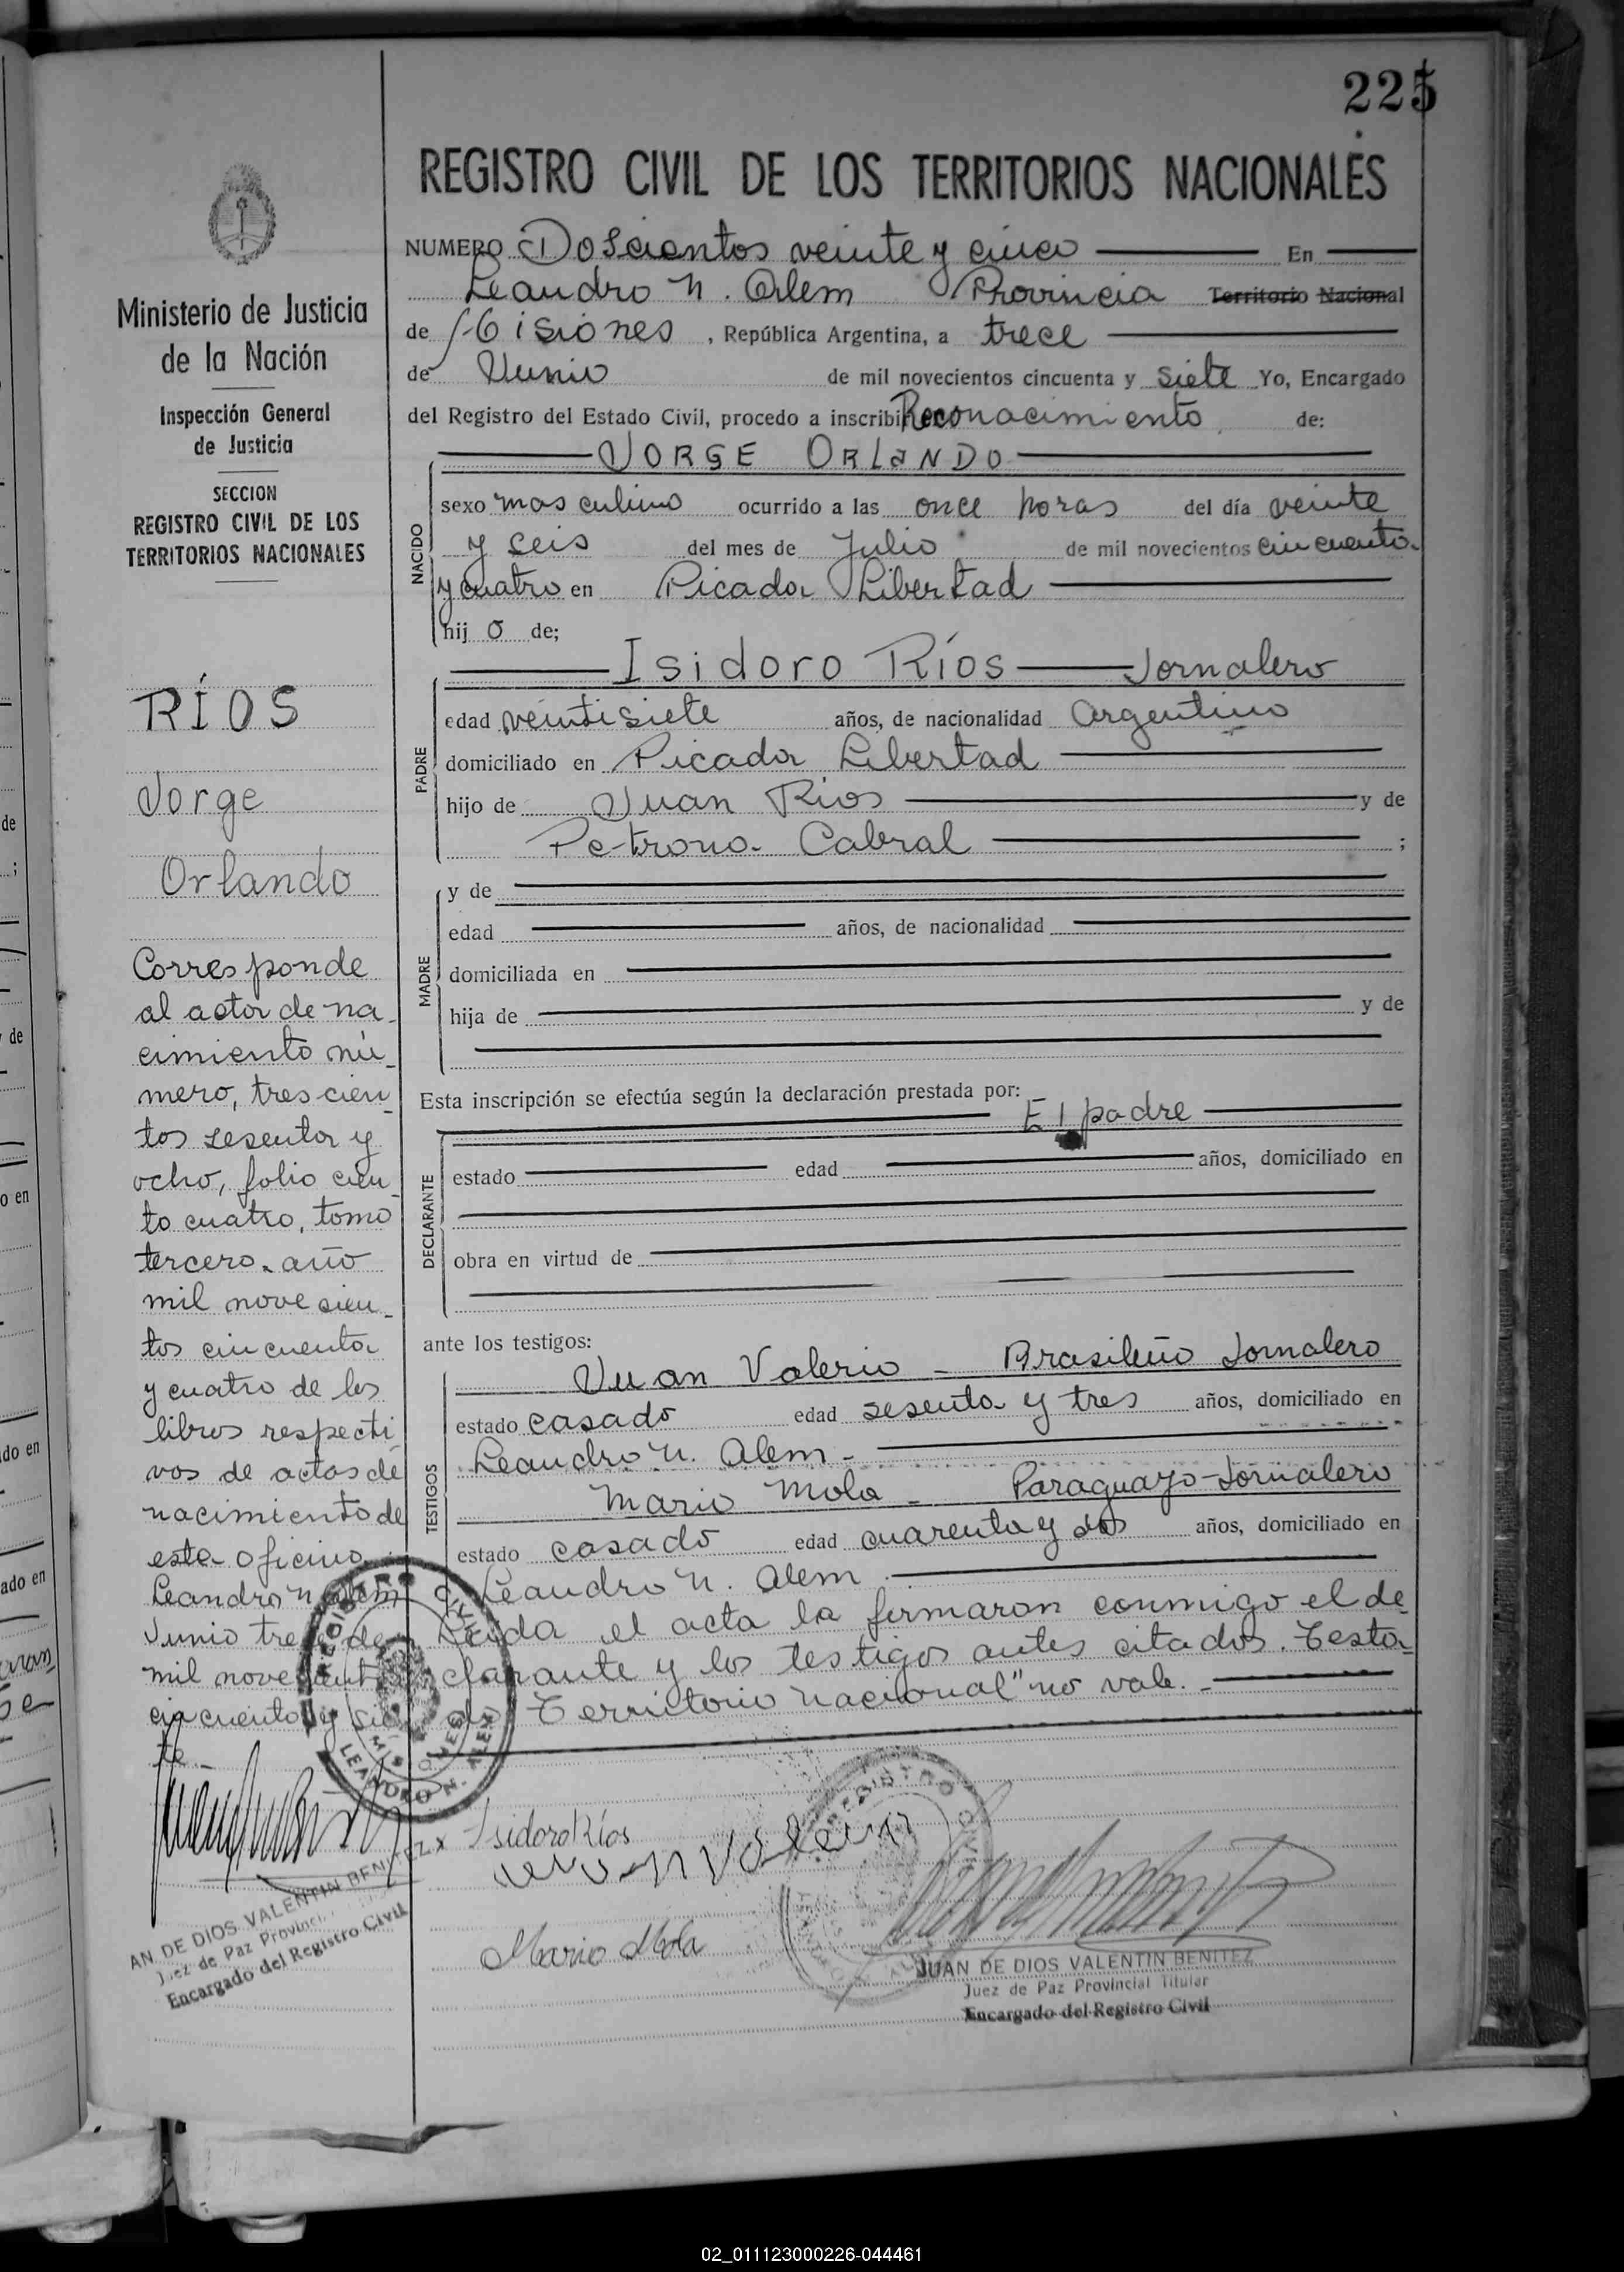 225
REGISTRO CIVIL DE LOS TERRITORIOS NACIONALES
NUMERO Doscientos veinte y cinco En
Leandro N. Alem Provincia Territorio Nacional
de Misiones, República Argentina, a trece
de Junio de mil novecientos cincuenta y siete Yo, Encargado
del Registro del Estado Civil, procedo a inscribir Reconocimiento de:
JORGE ORLANDO
NACIDO
sexo masculino ocurrido a las once horas del día veinte
y seis del mes de Julio de mil novecientos cincuenta
y cuatro en Picada Libertad
hijo de;
Isidoro Ríos Jornalero
PADRE
edad veintisiete años, de nacionalidad Argentino
domiciliado en Picada Libertad
hijo de Juan Ríos y de
Petrona Cabral ;
MADRE
y de
edad años, de nacionalidad
domiciliada en
hija de y de
Esta inscripción se efectúa según la declaración prestada por:
El padre
DECLARANTE
estado edad años, domiciliado en
obra en virtud de
ante los testigos:
TESTIGOS
Juan Valerio - Brasileño Jornalero
estado casado edad sesenta y tres años, domiciliado en
Leandro N. Alem -
Mario Mola - Paraguayo-Jornalero
estado casado edad cuarenta y dos años, domiciliado en
Leandro N. Alem
Leida el acta la firmaron conmigo el de
clarante y los testigos antes citados. Testa
do Territorio nacional" no vale. -
Isidoro Ríos
Juan Valerio
Mario Mola
JUAN DE DIOS VALENTIN BENITEZ
Juez de Paz Provincial Titular
Encargado del Registro Civil
Ministerio de Justicia
de la Nación
Inspección General
de Justicia
SECCION
REGISTRO CIVIL DE LOS
TERRITORIOS NACIONALES
RÍOS
Jorge
Orlando
Corresponde
al acta de na
cimiento nú
mero, trescien
tos sesenta y
ocho, folio cien
to cuatro, tomo
tercero. año
mil novesien
tos cincuenta
y cuatro de los
libros respecti
vos de actas de
nacimiento de
esta oficina
Leandro N Alem
Junio trece de
mil novecientos
cincuenta y sie
te.-
REGISTRO CIVIL
MISIONES
LEANDRO N. ALEM
AN DE DIOS VALENTIN BENITEZ
Juez de Paz Provinci
Encargado del Registro Civil
02_011123000226-044461